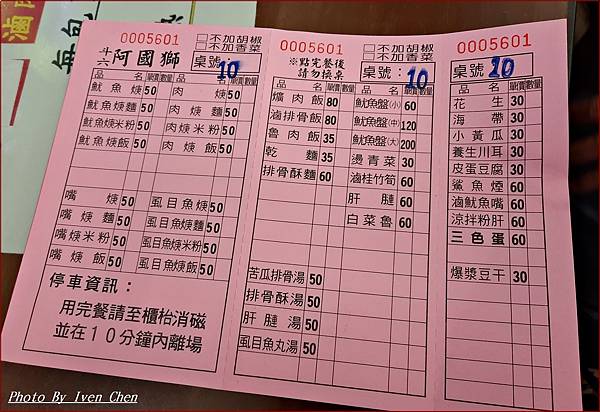 每包
0005601
斗六 阿國獅
□不加胡椒
□不加香菜
桌號: 10
品名 單價 數量 品名 單價 數量
魷魚焿 50 肉焿 50
魷魚焿麵 50 肉焿麵 50
魷魚焿米粉 50 肉焿米粉 50
魷魚焿飯 50 肉焿飯 50
嘴焿 50 虱目魚焿 50
嘴焿麵 50 虱目魚焿麵 50
嘴焿米粉 50 虱目魚焿米粉 50
嘴焿飯 50 虱目魚焿飯 50
停車資訊：
用完餐請至櫃枱消磁
並在10分鐘內離場
0005601
※點完餐後
請勿換桌
□不加胡椒
□不加香菜
桌號: 10
品名 單價 數量 品名 單價 數量
爌肉飯 80 魷魚盤(小) 60
滷排骨飯 80 魷魚盤(中) 120
魯肉飯 35 魷魚盤(大) 200
乾麵 35 燙青菜 30
排骨酥麵 60 滷桂竹筍 60
肝腱 60
白菜魯 60
苦瓜排骨湯 50
排骨酥湯 50
肝腱湯 50
虱目魚丸湯 50
0005601
桌號 10
品名 單價 數量
花生 30
海帶 30
小黃瓜 30
養生川耳 30
皮蛋豆腐 30
鯊魚煙 60
滷魷魚嘴 60
涼拌粉肝 60
三色蛋 60
爆漿豆干 30
Photo By Iven Chen